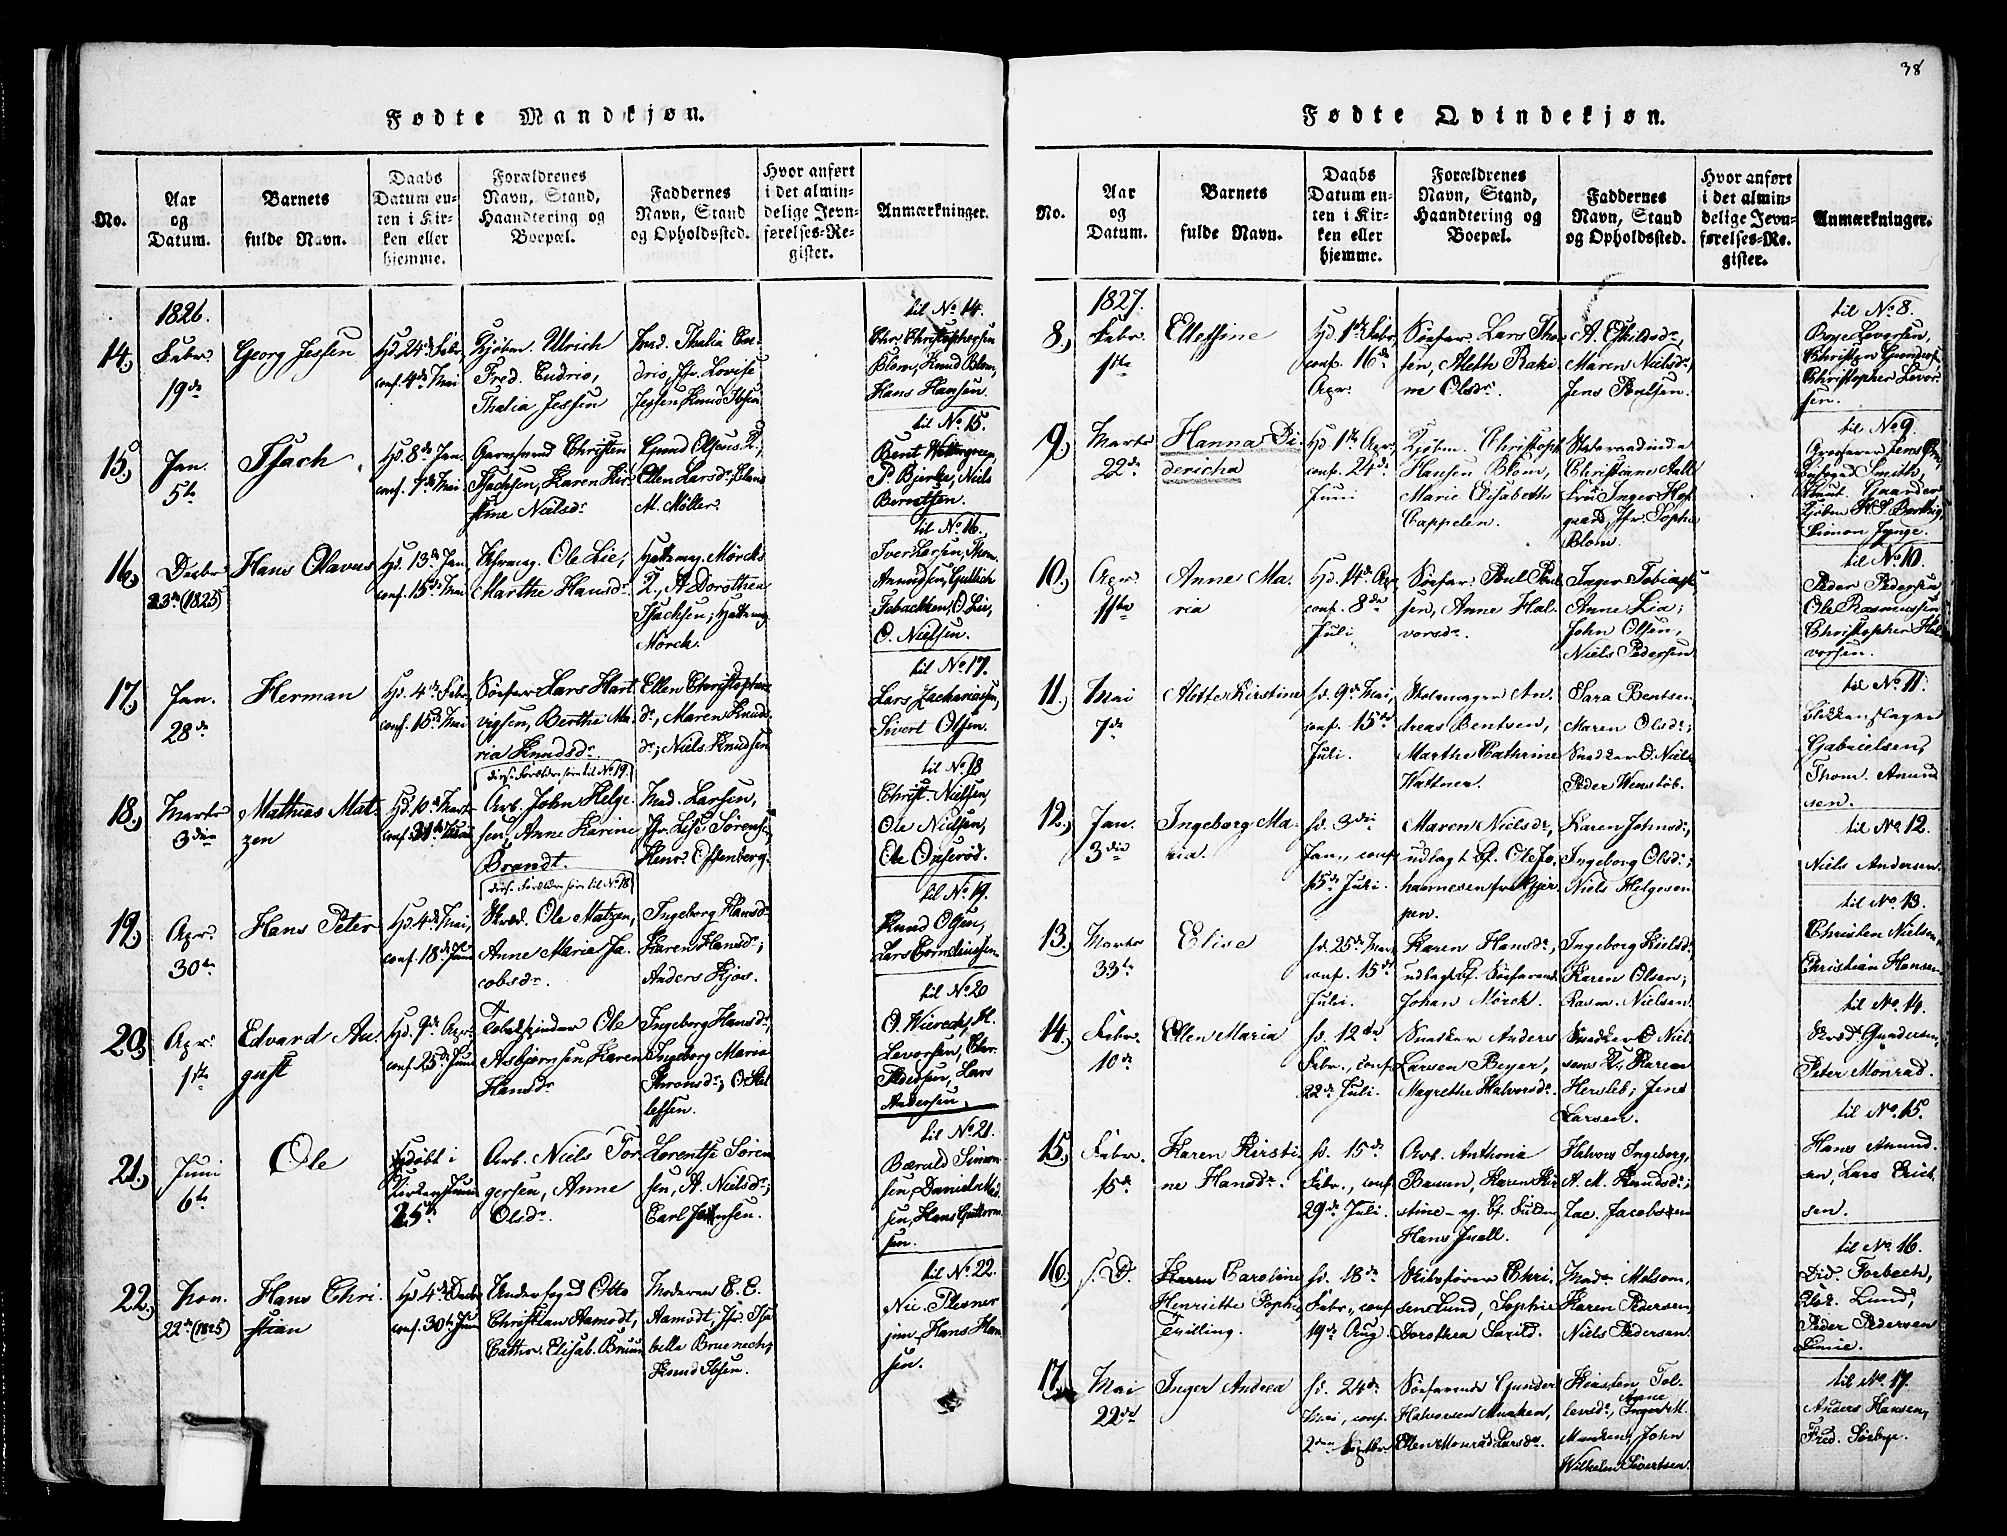 38
Fødte Mandkjøn.
No.
Aar
og
Datum.
Barnets
fulde Navn.
Daabs
Datum en-
ten i Kir-
ken eller
hjemme.
Forældrenes
Navn, Stand,
Haandtering og
Boepæl.
Faddernes
Navn, Stand
og Opholdssted.
Hvor anført
i det almin-
delige Jevn-
førelses-Re-
gister.
Anmærkninger.
1826.
14.)
Febr.
19de
Georg Jessen
Hj. 24de Febr.
conf. 4de Mai
Kjøbm. Ulrich
Fred. Cudrio,
Thalia Jessen
Mad. Thalia Cu-
drio, Jfr. Lovise
Jessen, Knud Ibsen
til No. 14.
Chr. Christophersen
Blom, Knud Blom,
Hans Hansen.
15.)
Jan.
5te
Isach
Hj. 8de Jan.
conf. 7de Mai
Christen
Isachsen, Karen Kir-
stine Nielsdr.
Lund Olsens K.,
Ellen Larsdr.,
M. Møller.
til No. 15.
Bent
P. Bjerke, Niels
Berntsen.
16.)
Decbr.
23de (1825)
Hans Olavus
Hj. 13de Jan.
conf. 15de Mai
Ole Lie,
Marthe Hansdr.
Hattemag. Mørchs
K., A. Dorothea
Isachsen, Hattemag.
Mørch.
til No. 16.
Iver Larsen, Thom.
Amundsen, Gullich
O. Lie,
O. Nielsen.
17.)
Jan.
28de
Herman
Hj. 4de Febr.
conf. 15de Mai
Søefar. Lars Hart-
vigsen, Berthe Ma-
ria Knudsdr.
Ellen Christophers-
dr., Maren Knuds-
dr., Niels Knudsen
til No. 17.
Lars Zachariassen,
Sivert Olsen.
18.)
Marts
3die
Mathias Mat-
zen
Hj. 10de Marts
conf.
(disse Forældre føre til No. 19.)
Arb. John Helge-
sen, Anne Karine
Brandt.
Mad. Larsen,
Jfr. Lise Sørensen,
Henr. Offenberg.
til No. 18
Christ. Nielsen,
Ole Nielsen,
Ole Opserød.
19.)
Apr.
30te
Hans Peter
Hj. 4de Mai,
conf. 18de Juni
(disse Forældre føre til No. 18)
Skræd. Ole Matzen,
Anne Maria Ja-
cobsdr.
Ingeborg Hansdr.
Karen Hansdr.,
Anders Kjøs.
til No. 19.
Knud Olsen,
Lars Corneliussen.
20.)
Apr.
1ste
Edvard Au-
gust
Hj. 9de Apr.
conf. 25de Juni
Tobakspinder Ole
Asbjørnsen, Karen
Hansdr.
Ingeborg Hansdr.,
Ingeborg Maria
Thronsdr., O. Stel-
lefsen.
til No. 20
O. Wierech, H.
Levorsen, Chr.
Pedersen, Lars
Andersen.
21.)
Juni
6te
Ole
døbt i
Kirken Juni
25de
Arb. Niels Tor-
gersen, Anne
Olsdr.
Lorentse Søren-
sen, A. Nielsdr.,
Carl Jensen.
til No. 21.
Bærald Simon-
sen, Daniel Mad-
sen, Hans Guttorm-
sen.
22.)
Nov.
22de (1825)
Hans Chri-
stian
Hj. 4de Decbr.
conf. 30te Juni
Underfoged Otto
Christian Aamodt,
Cathr. Elisab. Bruun
Moderen E. E.
Aamodt, Jfr. Isa-
bella Bruenech,
Knud Ibsen.
til No. 22.
Nic. Plesner
jun., Hans Han-
sen.
Fødte Qvindekjøn.
No.
Aar
og
Datum.
Barnets
fulde Navn.
Daabs
Datum en-
ten i Kir-
ken eller
hjemme.
Forældrenes
Navn, Stand,
Haandtering og
Boepæl.
Faddernes
Navn, Stand
og Opholdssted.
Hvor anført
i det almin-
delige Jevn-
førelses-Re-
gister.
Anmærkninger.
1827.
8.)
Febr.
1ste
Ellefine
Hj. 1ste Febr.,
conf. 16de
Apr.
Søefar. Lars Thom-
sen, Aleth Raki-
ne Olsdr.
A. Eskildsdr.,
Maren Nielsdr.,
Jens Poulsen.
til No. 8.
Boye Levorsen,
Christen Gunders.,
Christopher Levor-
sen.
9.)
Marts
22de
Hanna Di-
dericha
Hj. 1ste Apr.,
conf. 24de
Juni
Kjøbm. Christoph.
Hansen Blom,
Marie Elisabeth
Cappelen.
Etatsraadinde
Christiane Aall
Fru Inger Hof-
gaard, Jfr. Sophie
Blom.
til No. 9.
Grosserer Jens
Smith,
Knut Gaarder
Kjøbm. H. I. Bartnig,
Simon Jynge.
10.)
Apr.
11te
Anne Ma-
ria
Hj. 14de Apr.
conf. 8de
Juli
Søefar. Poul Poul-
sen, Anne Hal-
vorsdr.
Inger Tobiasdr.
Anne Lia,
John Olsen,
Niels Pedersen
til No. 10.
Peder Pedersen,
Ole Rasmussen,
Christopher Hal-
vorsen.
11.)
Mai
7de
Mette Kirstine
Hj. 9de Mai,
conf. 15de
Juli.
Stolemager An-
dreas Bentsen,
Marthe Cathrine
Wattnee.
Sara Bentsen
Maren Olsdr.,
Snedker O. Niels.
Peder Wenstøb.
til No. 11.
Blikkenslager
Gabrielsen,
Thom. Amund-
sen.
12.)
Jan.
3die
Ingeborg Ma-
ria.
Hj. 3die
Jan., conf.
15de Juli.
Maren Nielsdr.,
udlagt Bf. Ole Jo-
hannesen fra Gjer-
pen.
Karen Johnsdr.,
Ingeborg Olsdr.,
Niels Helgesen
til No. 12.
Niels Andersen.
13.)
Marts
33te
Elise
Hj. 25de Mar.
conf. 15de
Juli.
Karen Hansdr.,
udlagt Bf. Søefarende
Johan Mørch.
Ingeborg Kielsdr.
Karen Olsen,
Rasm. Nielsen
til No. 13.
Christen Nielsen,
Christian Hansen
14.)
Febr.
10de
Ellen Maria
Hj. 12te
Febr., conf.
22de Juli.
Snedker Anders
Larsen Beyer,
Magrethe Halvorsdr.
Snedker O. Niel-
sens K., Karen
Hersleb, Jens
Larsen.
til No. 14.
Gundersen,
Peter Monrad.
15.)
Febr.
15de
Karen Kirsti-
ne Hansdr.
Hj. 15de
Febr., conf.
29de Juli.
Arb. Anthoni
Bauen, Karen Kir-
stine – og Bf. Gulds.
Hans Juell.
Halvors Ingeborg,
A. M. Knudsdr.,
Zac. Jacobsen
til No. 15.
Hans Amund-
sen, Lars Erich-
sen.
16.)
s. D.
Caroline
Henriette Sophie
Trilling.
Hj. 18de
Febr., conf.
19de Aug.
Skibsfører Chri-
sten Lund, Sophie
Dorothea Saxild.
Mad. Molsom,
Karen Pedersen,
Niels Pedersen.
til No. 16.
Did. Forbech,
Lund,
Peder Pedersen
Smie.
17.)
Mai
22de
Inger Andrea
Hj. 24de
Mai, conf.
2den Septbr.
Søefarende Gunder
Halvorsen Munken,
Ellen Monrad Larsdr.
Kirsten Tol-
levsdr., Anne Inger M.
Munken, John
Wilhelm Sivertsen.
til No. 17.
Anders Hansen,
Fred. Sørbye.